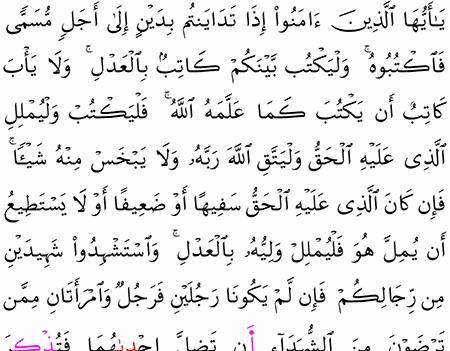 يَـٰٓأَيُّهَا ٱلَّذِينَ ءَامَنُوٓا۟ إِذَا تَدَايَنتُم بِدَيْنٍ إِلَىٰٓ أَجَلٍ مُّسَمًّى
فَٱكْتُبُوهُ ۚ وَلْيَكْتُب بَّيْنَكُمْ كَاتِبٌۢ بِٱلْعَدْلِ ۚ وَلَا يَأْبَ
كَاتِبٌ أَن يَكْتُبَ كَمَا عَلَّمَهُ ٱللَّهُ ۚ فَلْيَكْتُبْ وَلْيُمْلِلِ
ٱلَّذِى عَلَيْهِ ٱلْحَقُّ وَلْيَتَّقِ ٱللَّهَ رَبَّهُۥ وَلَا يَبْخَسْ مِنْهُ شَيْـًٔا ۚ
فَإِن كَانَ ٱلَّذِى عَلَيْهِ ٱلْحَقُّ سَفِيهًا أَوْ ضَعِيفًا أَوْ لَا يَسْتَطِيعُ
أَن يُمِلَّ هُوَ فَلْيُمْلِلْ وَلِيُّهُۥ بِٱلْعَدْلِ ۚ وَٱسْتَشْهِدُوا۟ شَهِيدَيْنِ
مِن رِّجَالِكُمْ ۖ فَإِن لَّمْ يَكُونَا رَجُلَيْنِ فَرَجُلٌ وَٱمْرَأَتَانِ مِمَّن
تَرْضَوْنَ مِنَ ٱلشُّهَدَآءِ أَن تَضِلَّ إِحْدَىٰهُمَا فَتُذَكِّرَ